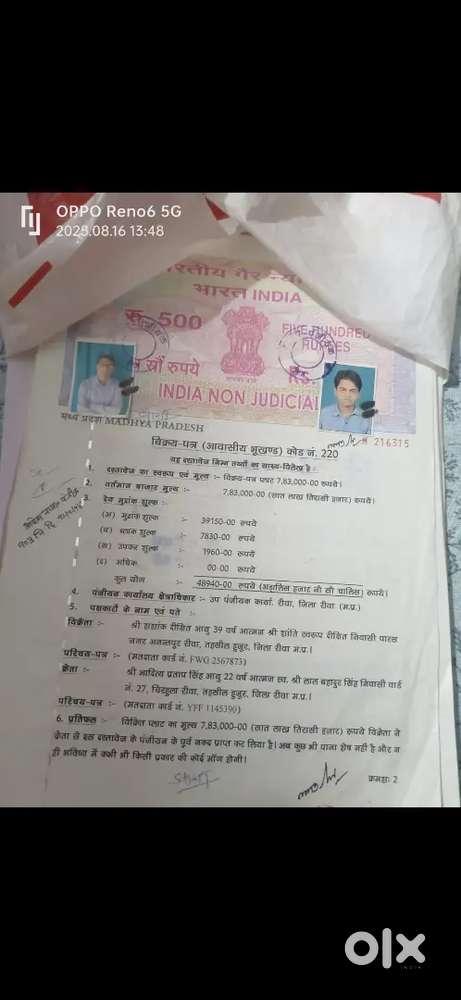 OPPO Reno6 5G
2025.08.16 13:48
भारत INDIA
रु. 500
FIVE HUNDRED
RUPEES
सौ रुपये
RS.
INDIA NON JUDICIAL
मध्य प्रदेश MADHYA PRADESH
216315
विक्रय-पत्र (आवासीय भूखण्ड) कोड नं. 220
यह दस्तावेज निम्न तथ्यों का साक्ष्य-विलेख है :-
1. दस्तावेज का स्वरूप एवं मूल्य :- विक्रय-पत्र प्लाट 7,83,000-00 रूपये।
2. वर्तमान बाजार मूल्य :- 7,83,000-00 (सात लाख तिरासी हजार) रूपये।
3. देय मुद्रांक शुल्क :-
(अ) मुद्रांक शुल्क :- 39150-00 रूपये
(ब) शुल्क :- 7830-00 रूपये
(स) उपकर शुल्क :- 1960-00 रूपये
(द) अधिक :- 00-00 रूपये
कुल योग :- 48940-00 रूपये (अड़तालिस हजार नौ सौ चालिस) रूपये।
4. पंजीयन कार्यालय क्षेत्राधिकार :- उप पंजीयक कार्या. रीवा, जिला रीवा (म.प्र.)
5. पक्षकारों के नाम एवं पते :-
विक्रेता :- श्री शशांक दीक्षित आयु 39 वर्ष आत्मज श्री शांति स्वरूप दीक्षित निवासी पारस
नगर अनन्तपुर रीवा, तहसील हुजूर, जिला रीवा म.प्र.।
परिचय-पत्र :- (मतदाता कार्ड नं. FWG 2567873)
क्रेता :- श्री आदित्य प्रताप सिंह आयु 22 वर्ष आत्मज स्व. श्री लाल बहादुर सिंह निवासी वार्ड
नं. 27, चिरहुला रीवा, तहसील हुजूर, जिला रीवा म.प्र.।
परिचय-पत्र :- (मतदाता कार्ड नं. YFF 1145390)
6. प्रतिफल :- विक्रित प्लाट का मूल्य 7,83,000-00 (सात लाख तिरासी हजार) रूपये विक्रेता ने
क्रेता से इस दस्तावेज के पंजीयन के पूर्व नकद प्राप्त कर लिया है। अब कुछ भी पाना शेष नहीं है और न
ही भविष्य में कभी भी किसी प्रकार की कोई माँग होगी।
क्रमशः 2
olx
INDIA